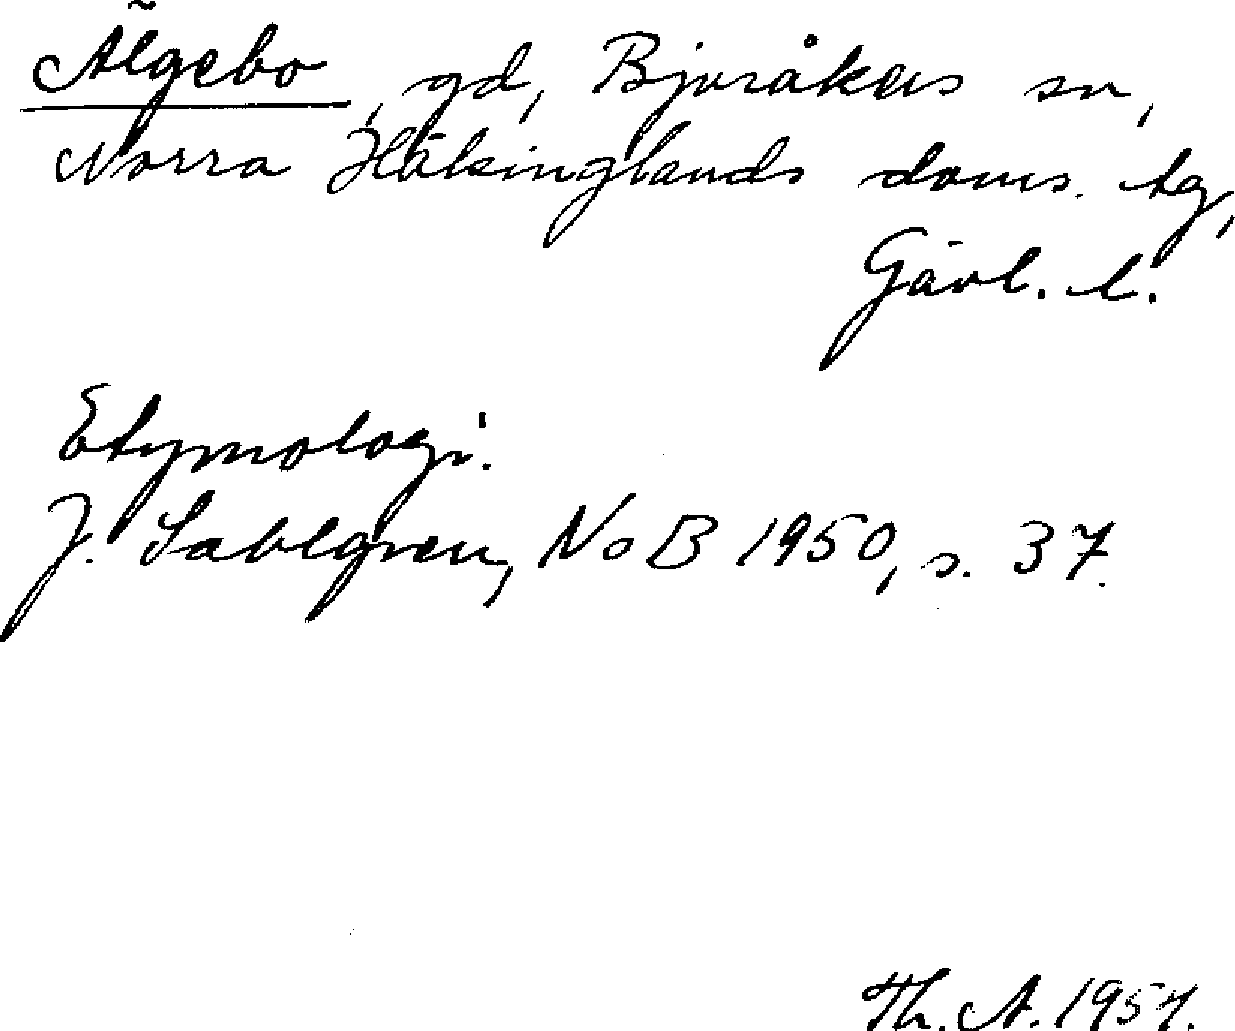 Älgebo, gd, Bjuråkers sn,
Norra Hälsinglands doms. tg,
Gävl. l.
Etymologi.
J. Sahlgren, NoB 1950, s. 37.
Th. A. 1954.